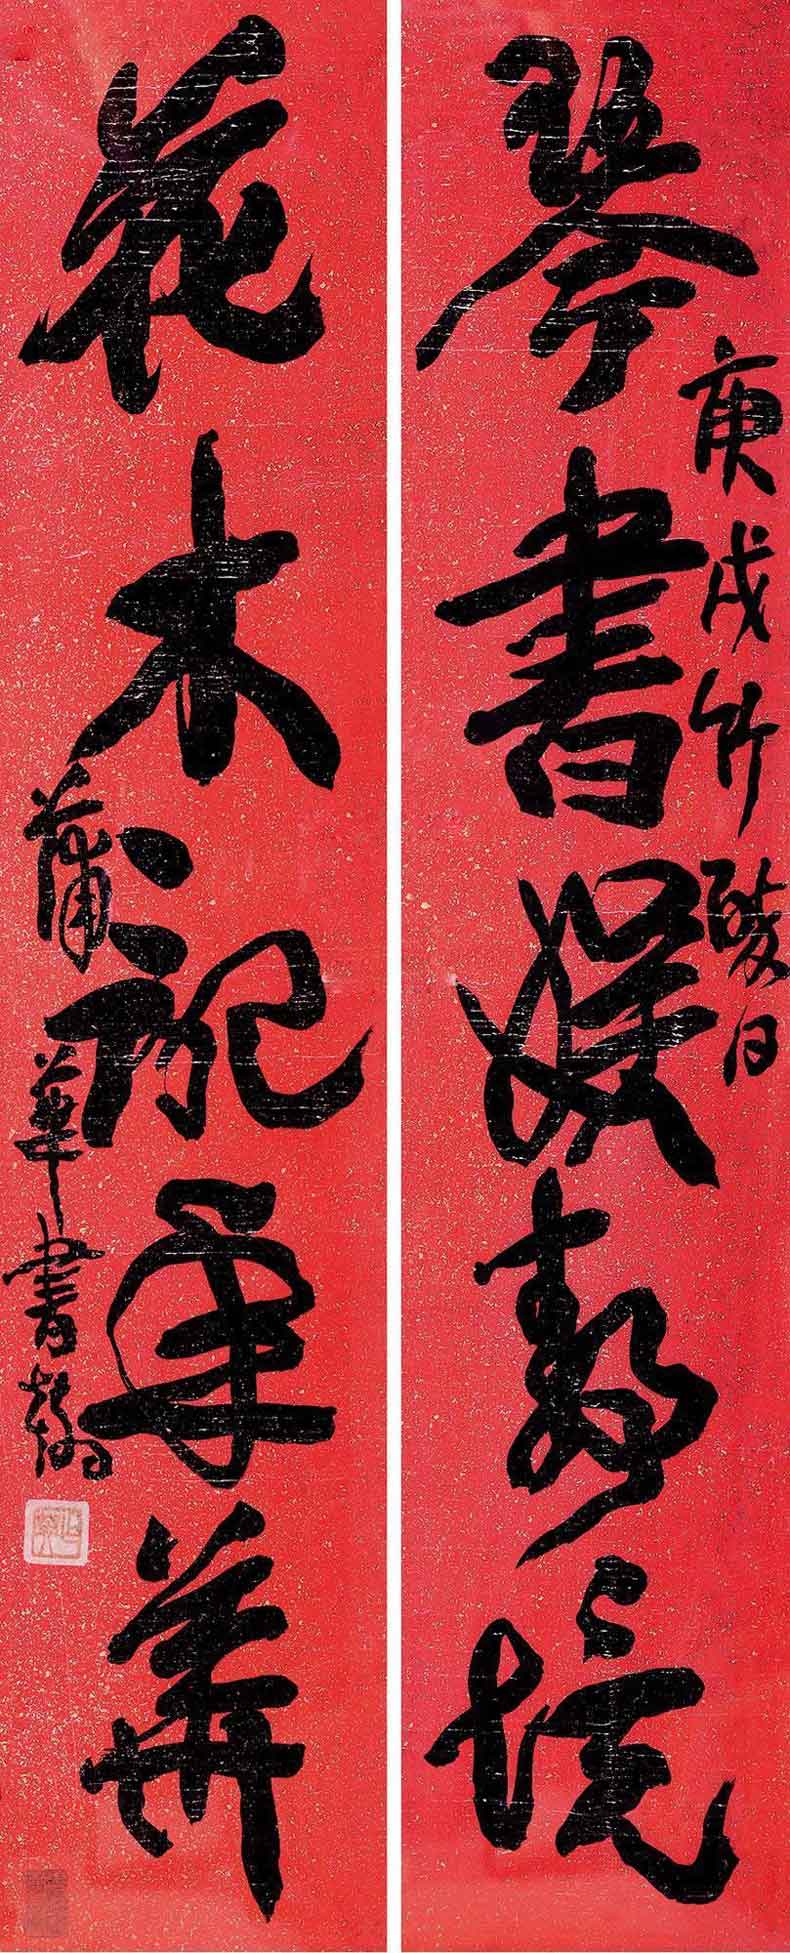 琴書娛靜境
庚戌竹醉日
花木記年華
蒲華書